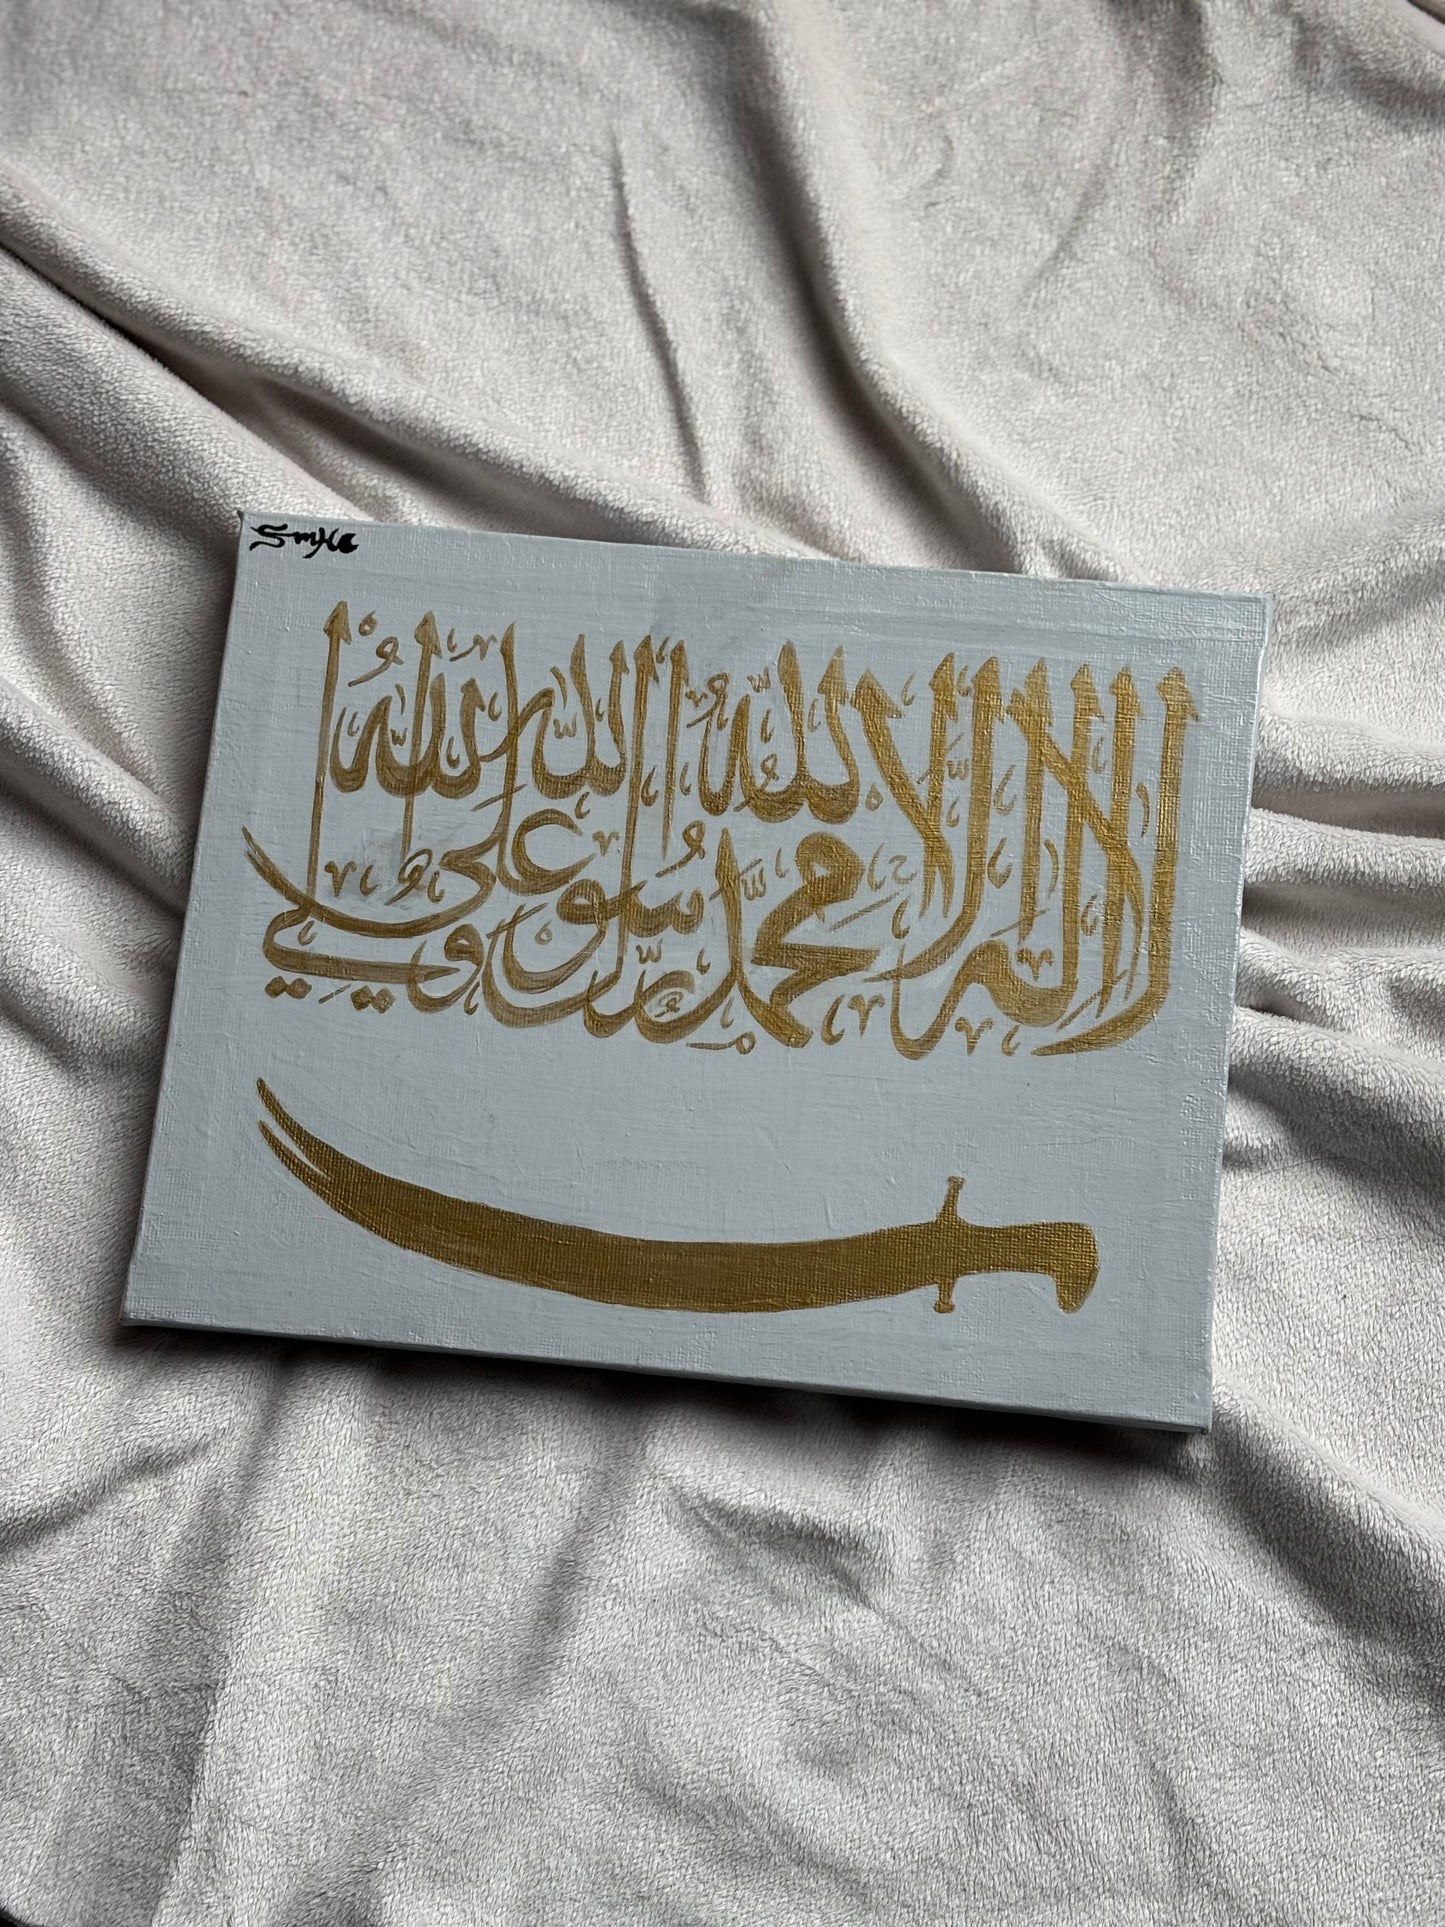 SmHa
لا إله إلا الله محمد رسول الله علي ولي الله